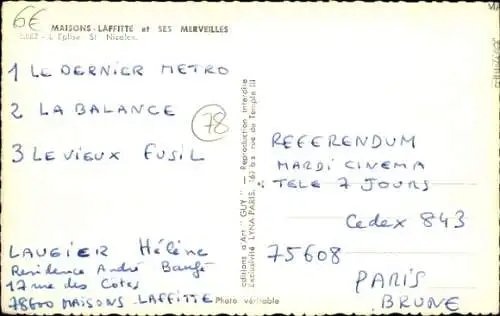 6€
MAISONS-LAFFITTE et SES MERVEILLES
L'Eglise St Nicolas.
1 LE DERNIER METRO
2 LA BALANCE
78
3 LE VIEUX FUSIL
LAUGIER Hélène
Residence André
17 rue des Côtes
78600 MAISONS LAFFITTE
Photo véritable
editions d'Art "GUY" - Reproduction interdite
Exclusivité LYNA PARIS, 163 bis rue du Temple III
REFERENDUM
MARDI CINEMA
TELE 7 JOURS
Cedex 843
75608
PARIS
BRUNE